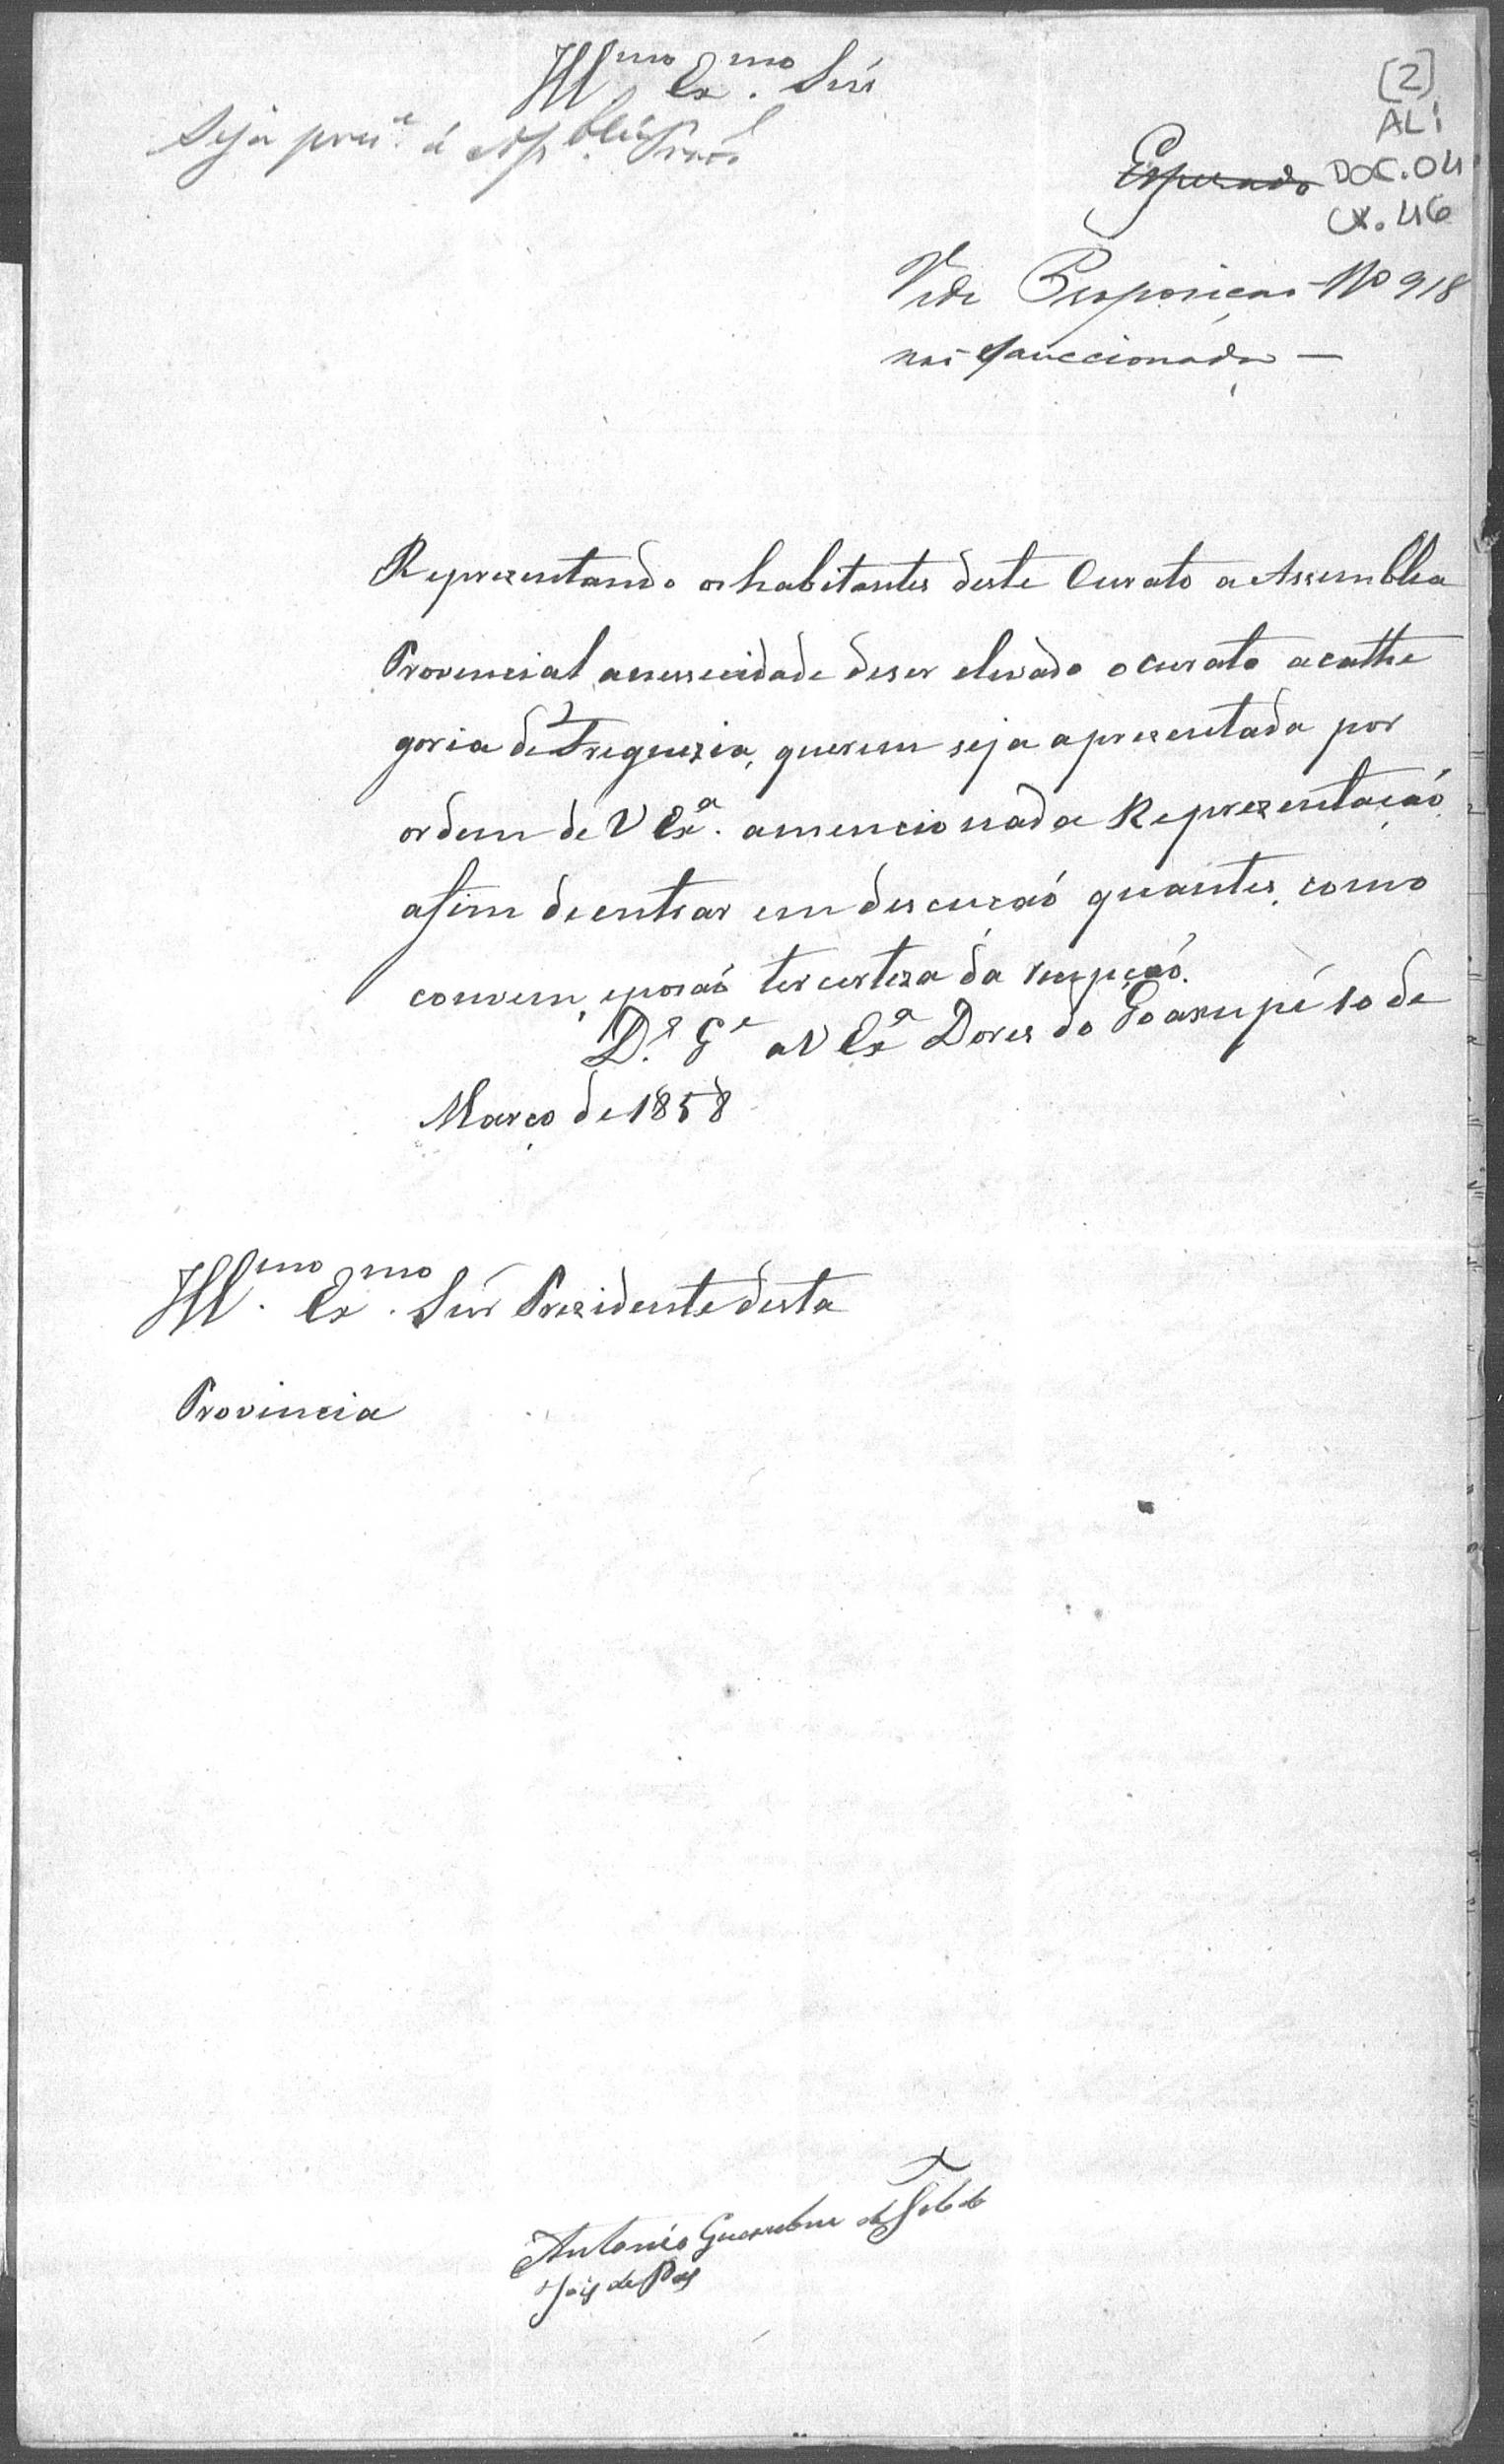 Illmo Exmo Snr
Seja pre.e á Ass.blea Prov.l
[2]
AL1
DOC.04
CX.46
Esperado
Vide Proposicao No 918
nao sanccionada —
Reprezentando os habitantes deste Curato a Assemblea
Provincial anessecidade deser elevado o curato a cathe
goria de Freguezia, querem seja aprezentada por
ordem de V Exa. amencionada Reprezentação
afim de entrar em discução quantes, como
convem, eposão ter certeza da recpção.
D.s G.e a V Exa Dores do Goaxupé 10 de
Março de 1858
Illmo. Exmo. Snr Prezidente desta
Provincia
Antonio de Toledo
Juis de Pas